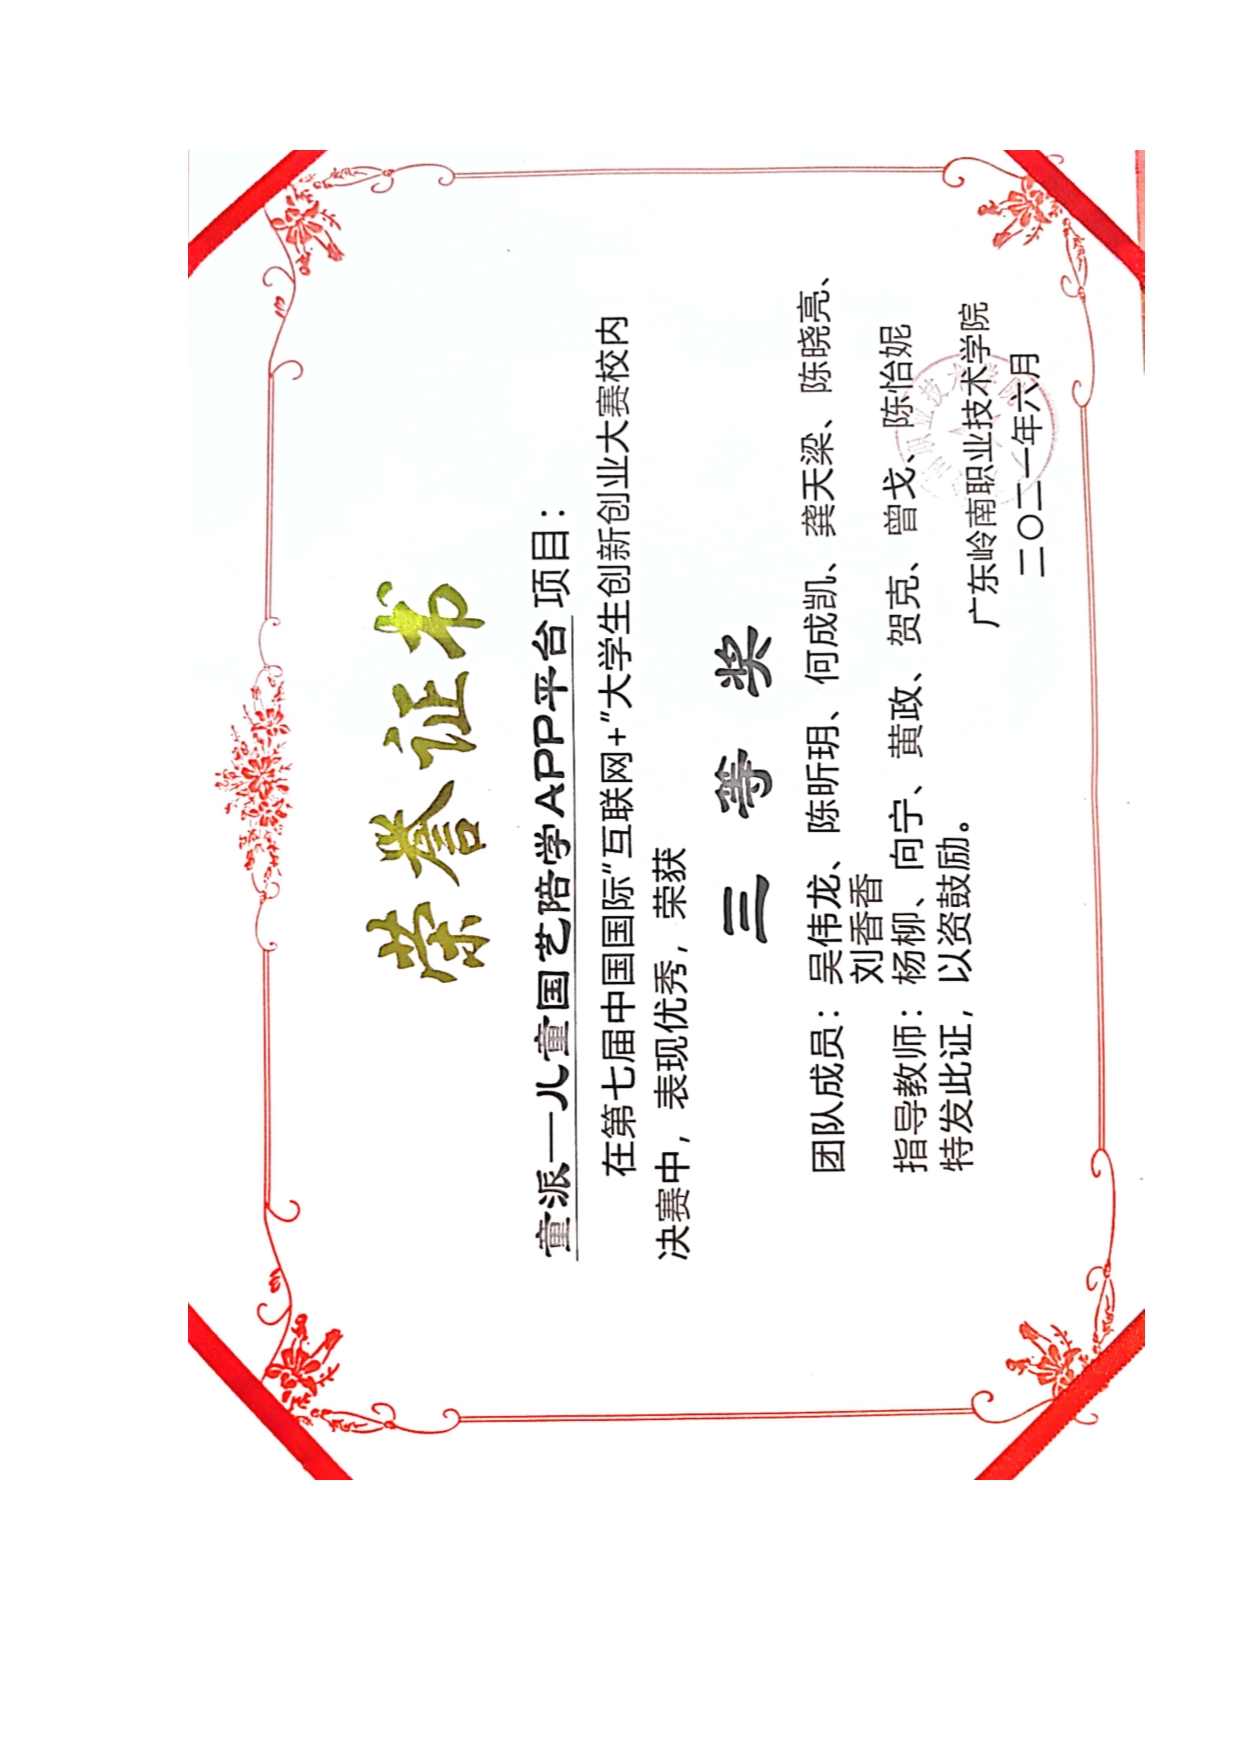 荣誉证书
童派—儿童国艺陪学APP平台项目：
在第七届中国国际“互联网+”大学生创新创业大赛校内
决赛中，表现优秀，荣获
三等奖
团队成员：吴伟龙、陈昕玥、何成凯、龚天梁、陈晓亮、
刘香香
指导教师：杨柳、向宁、黄政、贺克、曾戈、陈怡妮
特发此证，以资鼓励。
广东岭南职业技术学院
二〇二一年六月